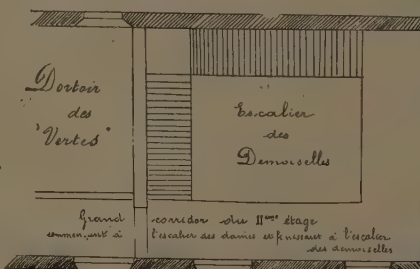 Dortoir
des
"Vertes"
Escalier
des
Demoiselles
Grand corridor du IIme étage
commençant à l'escalier des dames et finissant à l'escalier
des demoiselles